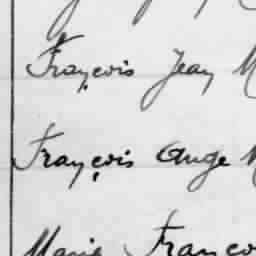 François Jean M
François Ange M
Marie Franço